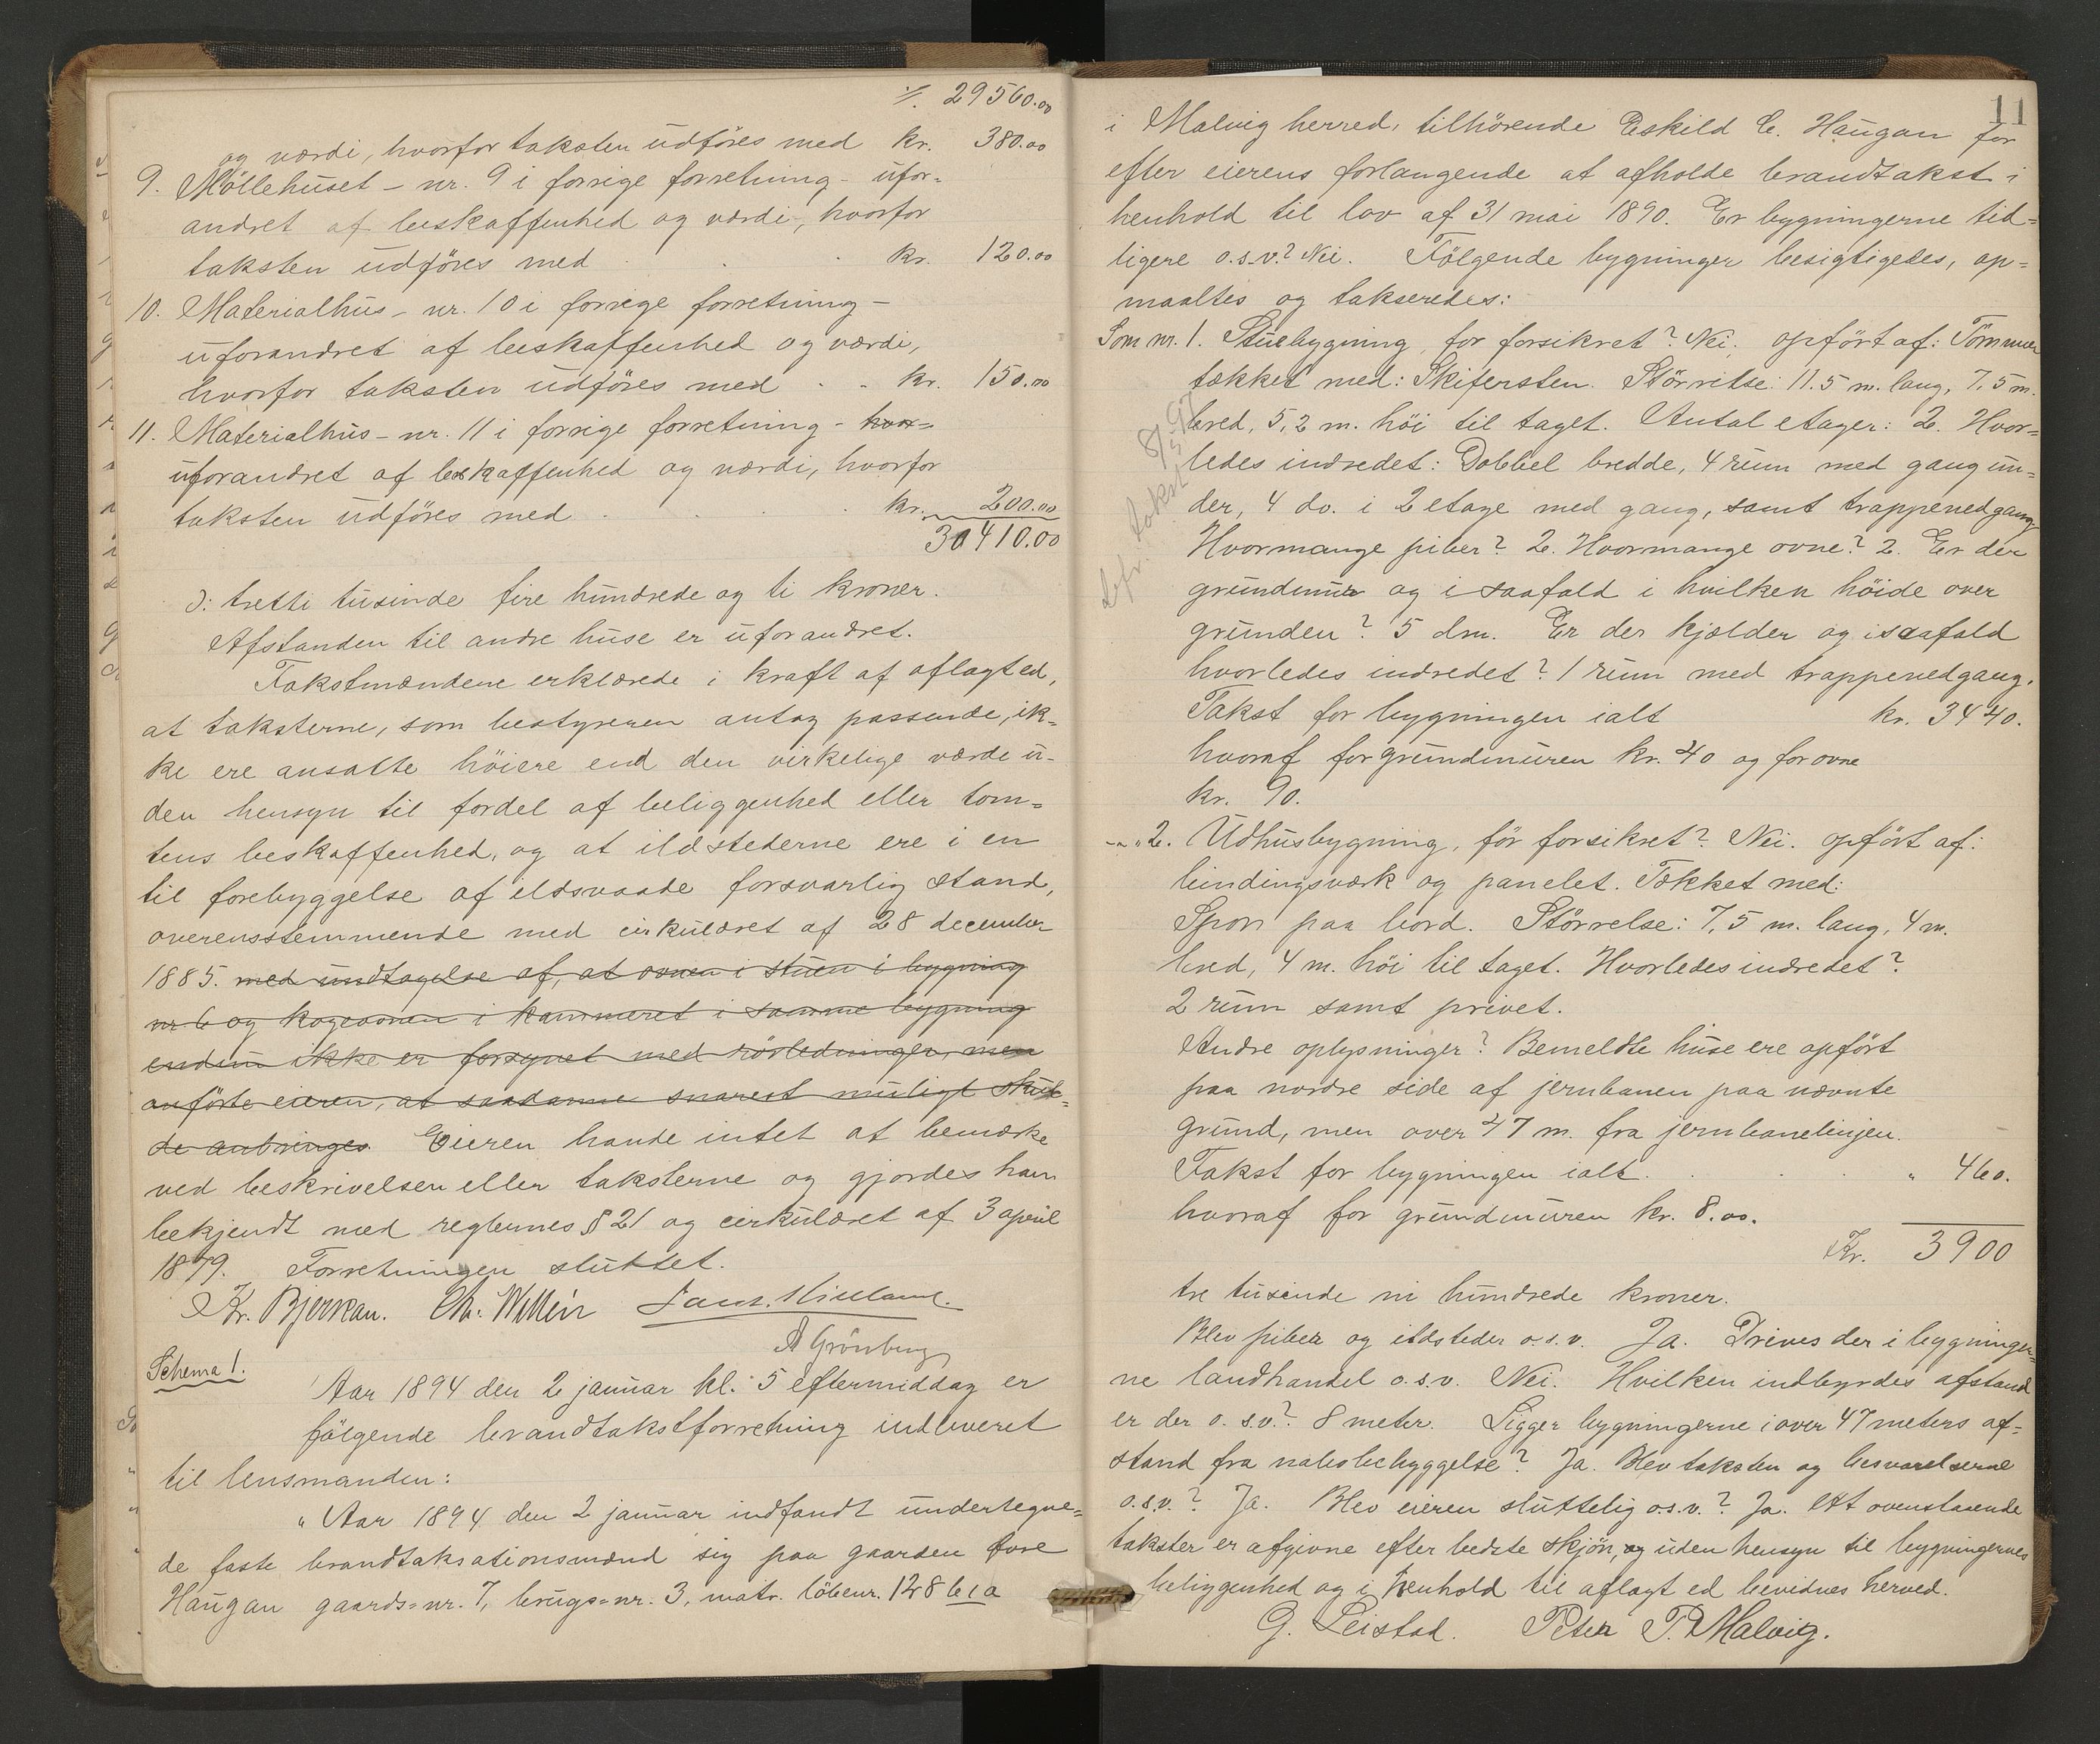 ⁒ 29560.00
og værdi, hvorfor taksten udföres med kr. 380.00
9. Möllehuset - nr. 9 i forrige forretning - ufor-
andret af beskaffenhed og værdi, hvorfor
taksten udföres med kr. 120.00
10. Materialhus - nr. 10 i forrige forretning -
uforandret af beskaffenhed og værdi,
hvorfor taksten udföres med kr. 150.00
11. Materialhus - nr. 11 i forrige forretning - hvor=
uforandret af beskaffenhed og værdi, hvorfor
taksten udföres med kr. 200.00
30410.00
ɔ: tretti tusinde fire hundrede og ti kroner.
Afstanden til andre huse er uforandret.
Takstmændene erklærede i kraft af aflagt ed,
at taksterne, som bestyreren antog passende, ik-
ke ere ansatte höiere end den virkelige værdi u-
den hensyn til fordel af beliggenhed eller tom=
tens beskaffenhed, og at ildstederne ere i en
til forebyggelse af ildsvaade forsvarlig stand,
overensstemmende med cirkulæret af 28 december
1885. med undtagelse af, at ovnen i stuen i bygning
nr 6 og kogeovnen i kammeret i samme bygning
endnu ikke er forsynet med rörledninger, men
anförte eieren, at saadanne snarest muligt skul=
de anbringes. Eieren havde intet at bemærke
ved beskrivelsen eller taksterne og gjordes han
bekjendt med reglernes § 21 og cirkulæret af 3 april
1879. Forretningen sluttet.
Kr. Bjerkan. Chr. Willén
A Grönberg
Schema 1.
Aar 1894 den 2 januar kl. 5 eftermiddag er
fölgende brandtakstforretning indleveret
til lensmanden:
" Aar 1894 den 2 januar indfandt undertegne=
de faste brandtaksationsmænd sig paa gaarden Övre
Haugan gaards=nr. 7, brugs=nr. 3, matr. löbenr. 128 b 1 a
11
i Malvig herred, tilhörende Eskild C. Haugan for
efter eierens forlangende at afholde brandtakst i
henhold til lov af 31 mai 1890. Er bygningerne tid=
ligere o.s.v.? Nei. Fölgende bygninger besigtigedes, op=
maaltes og takseredes:
Som nr. 1. Stuebygning, för forsikret? Nei. opfört af: Tömmer
tækket med: Skifersten. Störrelse: 11.5 m. lang, 7.5 m.
bred, 5,2 m. höi til taget. Antal etager: 2. Hvor=
ledes indredet: Dobbel bredde, 4 rum med gang un-
der, 4 do. i 2 etage med gang, samt trappenedgang
Hvormange piber? 2. Hvormange ovne? 2. Er der
grundmur og i saafald i hvilken höide over
grunden? 5 dm. Er der kjælder og i saafald
hvorledes indredet? 1 rum med trappenedgang.
Takst for bygningen ialt kr. 3440.
hvoraf for grundmuren kr. 40 og for ovne
kr. 90.
-"- 2. Udhusbygning, för forsikret? Nei. opfört af:
bindingsværk og panelet. Tækket med:
Spon paa bord. Störrelse: 7,5 m. lang, 4 m.
bred, 4 m. höi til taget. Hvorledes indredet?
2 rum samt privet.
Andre oplysninger? Bemeldte huse ere opfört
paa nordre side af jernbanen paa nævnte
grund, men over 47 m. fra jernbanelinjen.
Takst for bygningen ialt " 460.
hvoraf for grundmuren kr. 8.00.
Kr. 3900
tre tusinde ni hundrede kroner.
Blev piber og ildsteder o.s.v. Ja. Drives der i bygninger=
ne landhandel o.s.v. Nei. Hvilken indbyrdes afstand
er der o.s.v.? 8 meter. Ligger bygningerne i over 47 meters af=
stand fra nabobebyggelse? Ja. Blev taksten og besvarelserne
o.s.v.? Ja. Blev eieren sluttelig o.s.v.? Ja. At ovenstaaende
takster er afgivne efter bedste skjön, og uden hensyn til bygningernes
beliggenhed og i henhold til aflagt ed bevidnes herved.
G. Leistad. Peter P. Malvig.